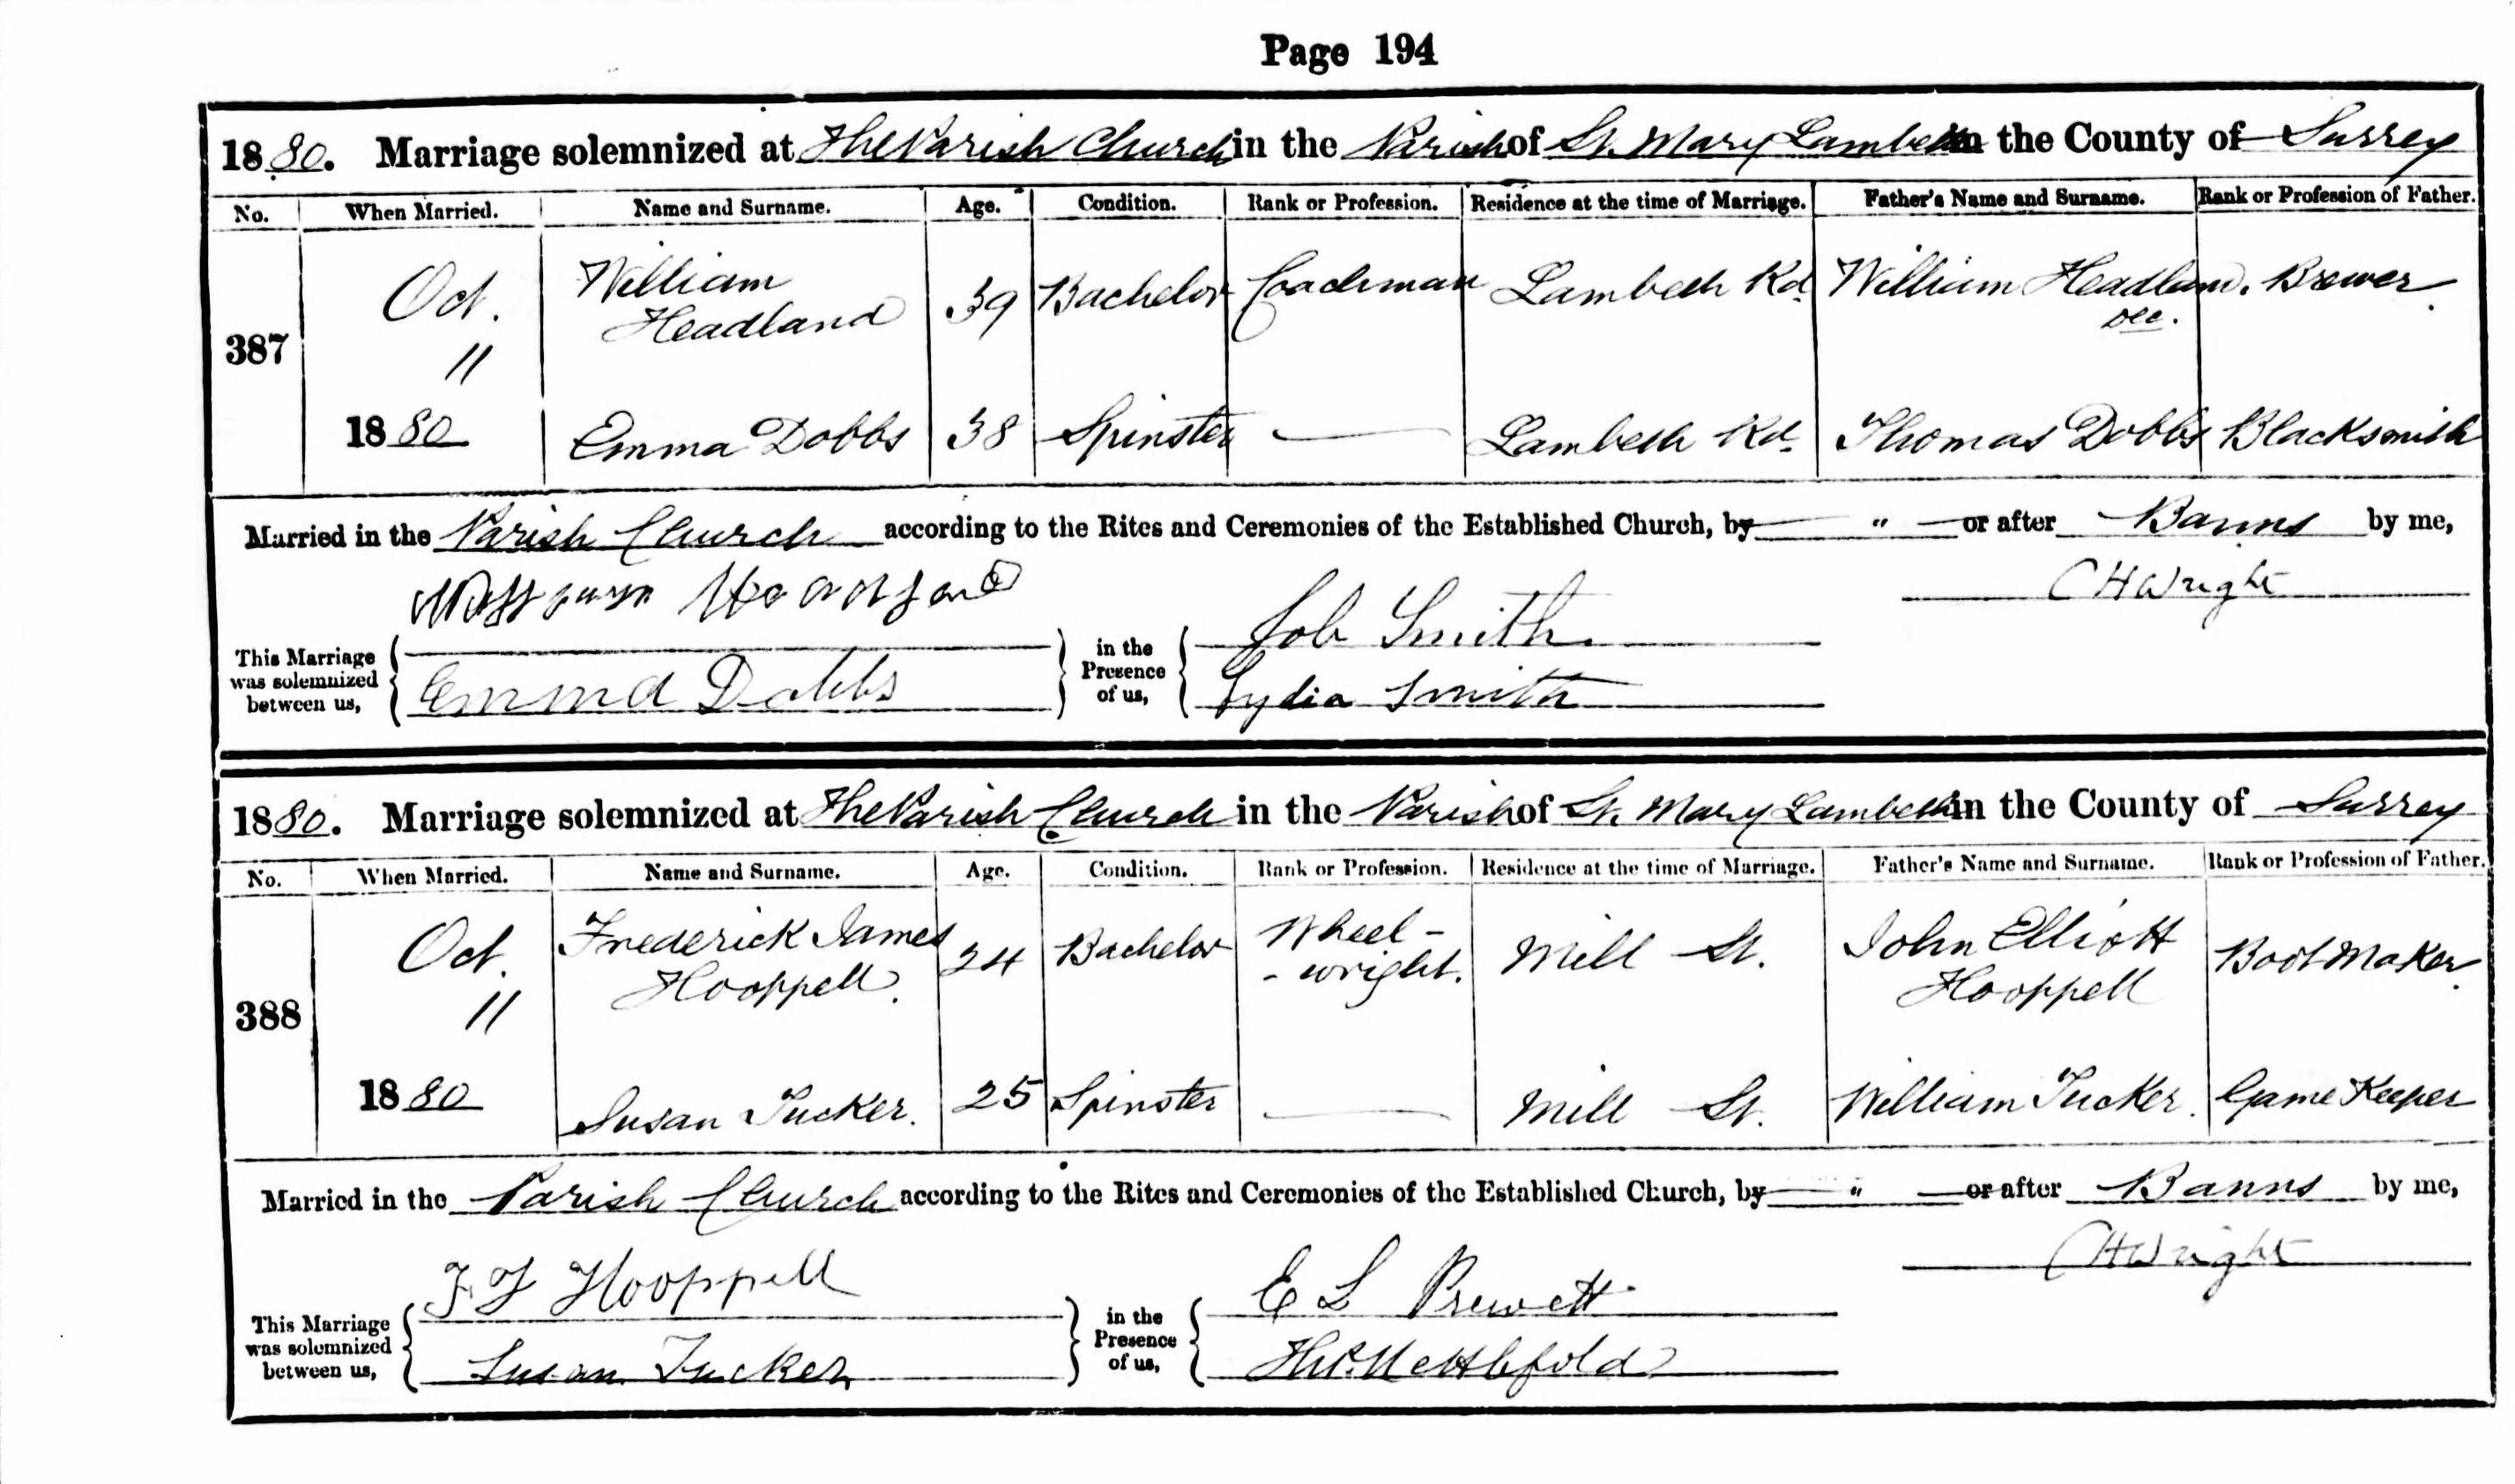 Page 194
1880. Marriage solemnized at The Parish Church in the Parish of St. Mary Lambeth in the County of Surrey
No. When Married. Name and Surname. Age. Condition. Rank or Profession. Residence at the time of Marriage. Father's Name and Surname. Rank or Profession of Father.
387 Oct. 11 1880 William Headland 39 Bachelor Coachman Lambeth Rd. William Headland. Dec. Brewer.
Emma Dobbs 38 Spinster — Lambeth Rd. Thomas Dobbs Blacksmith
Married in the Parish Church according to the Rites and Ceremonies of the Established Church, by — " — or after Banns by me,
C H Wright
This Marriage was solemnized between us, William Headland Emma Dobbs in the Presence of us, Job Smith Lydia Smith
1880. Marriage solemnized at The Parish Church in the Parish of St. Mary Lambeth in the County of Surrey
No. When Married. Name and Surname. Age. Condition. Rank or Profession. Residence at the time of Marriage. Father's Name and Surname. Rank or Profession of Father.
388 Oct. 11 1880 Frederick James Hooppell. 24 Bachelor Wheel--wright. Mill St. John Elliott Hooppell Boot Maker.
Susan Tucker. 25 Spinster — Mill St. William Tucker. Game Keeper
Married in the Parish Church according to the Rites and Ceremonies of the Established Church, by — " — or after Banns by me,
C H Wright
This Marriage was solemnized between us, F J Hooppell Susan Tucker in the Presence of us, E L Prewett Nettlefold